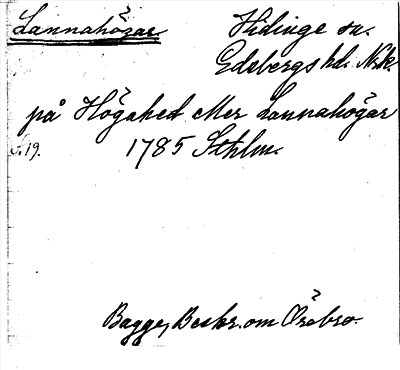 Lannahögar
Hidinge sn.
Edsbergs hd. Nrk.
på Högahed eller Lannahögar
s. 19.
1785 Sthlm.
Bagge, Beskr. om Örebro.